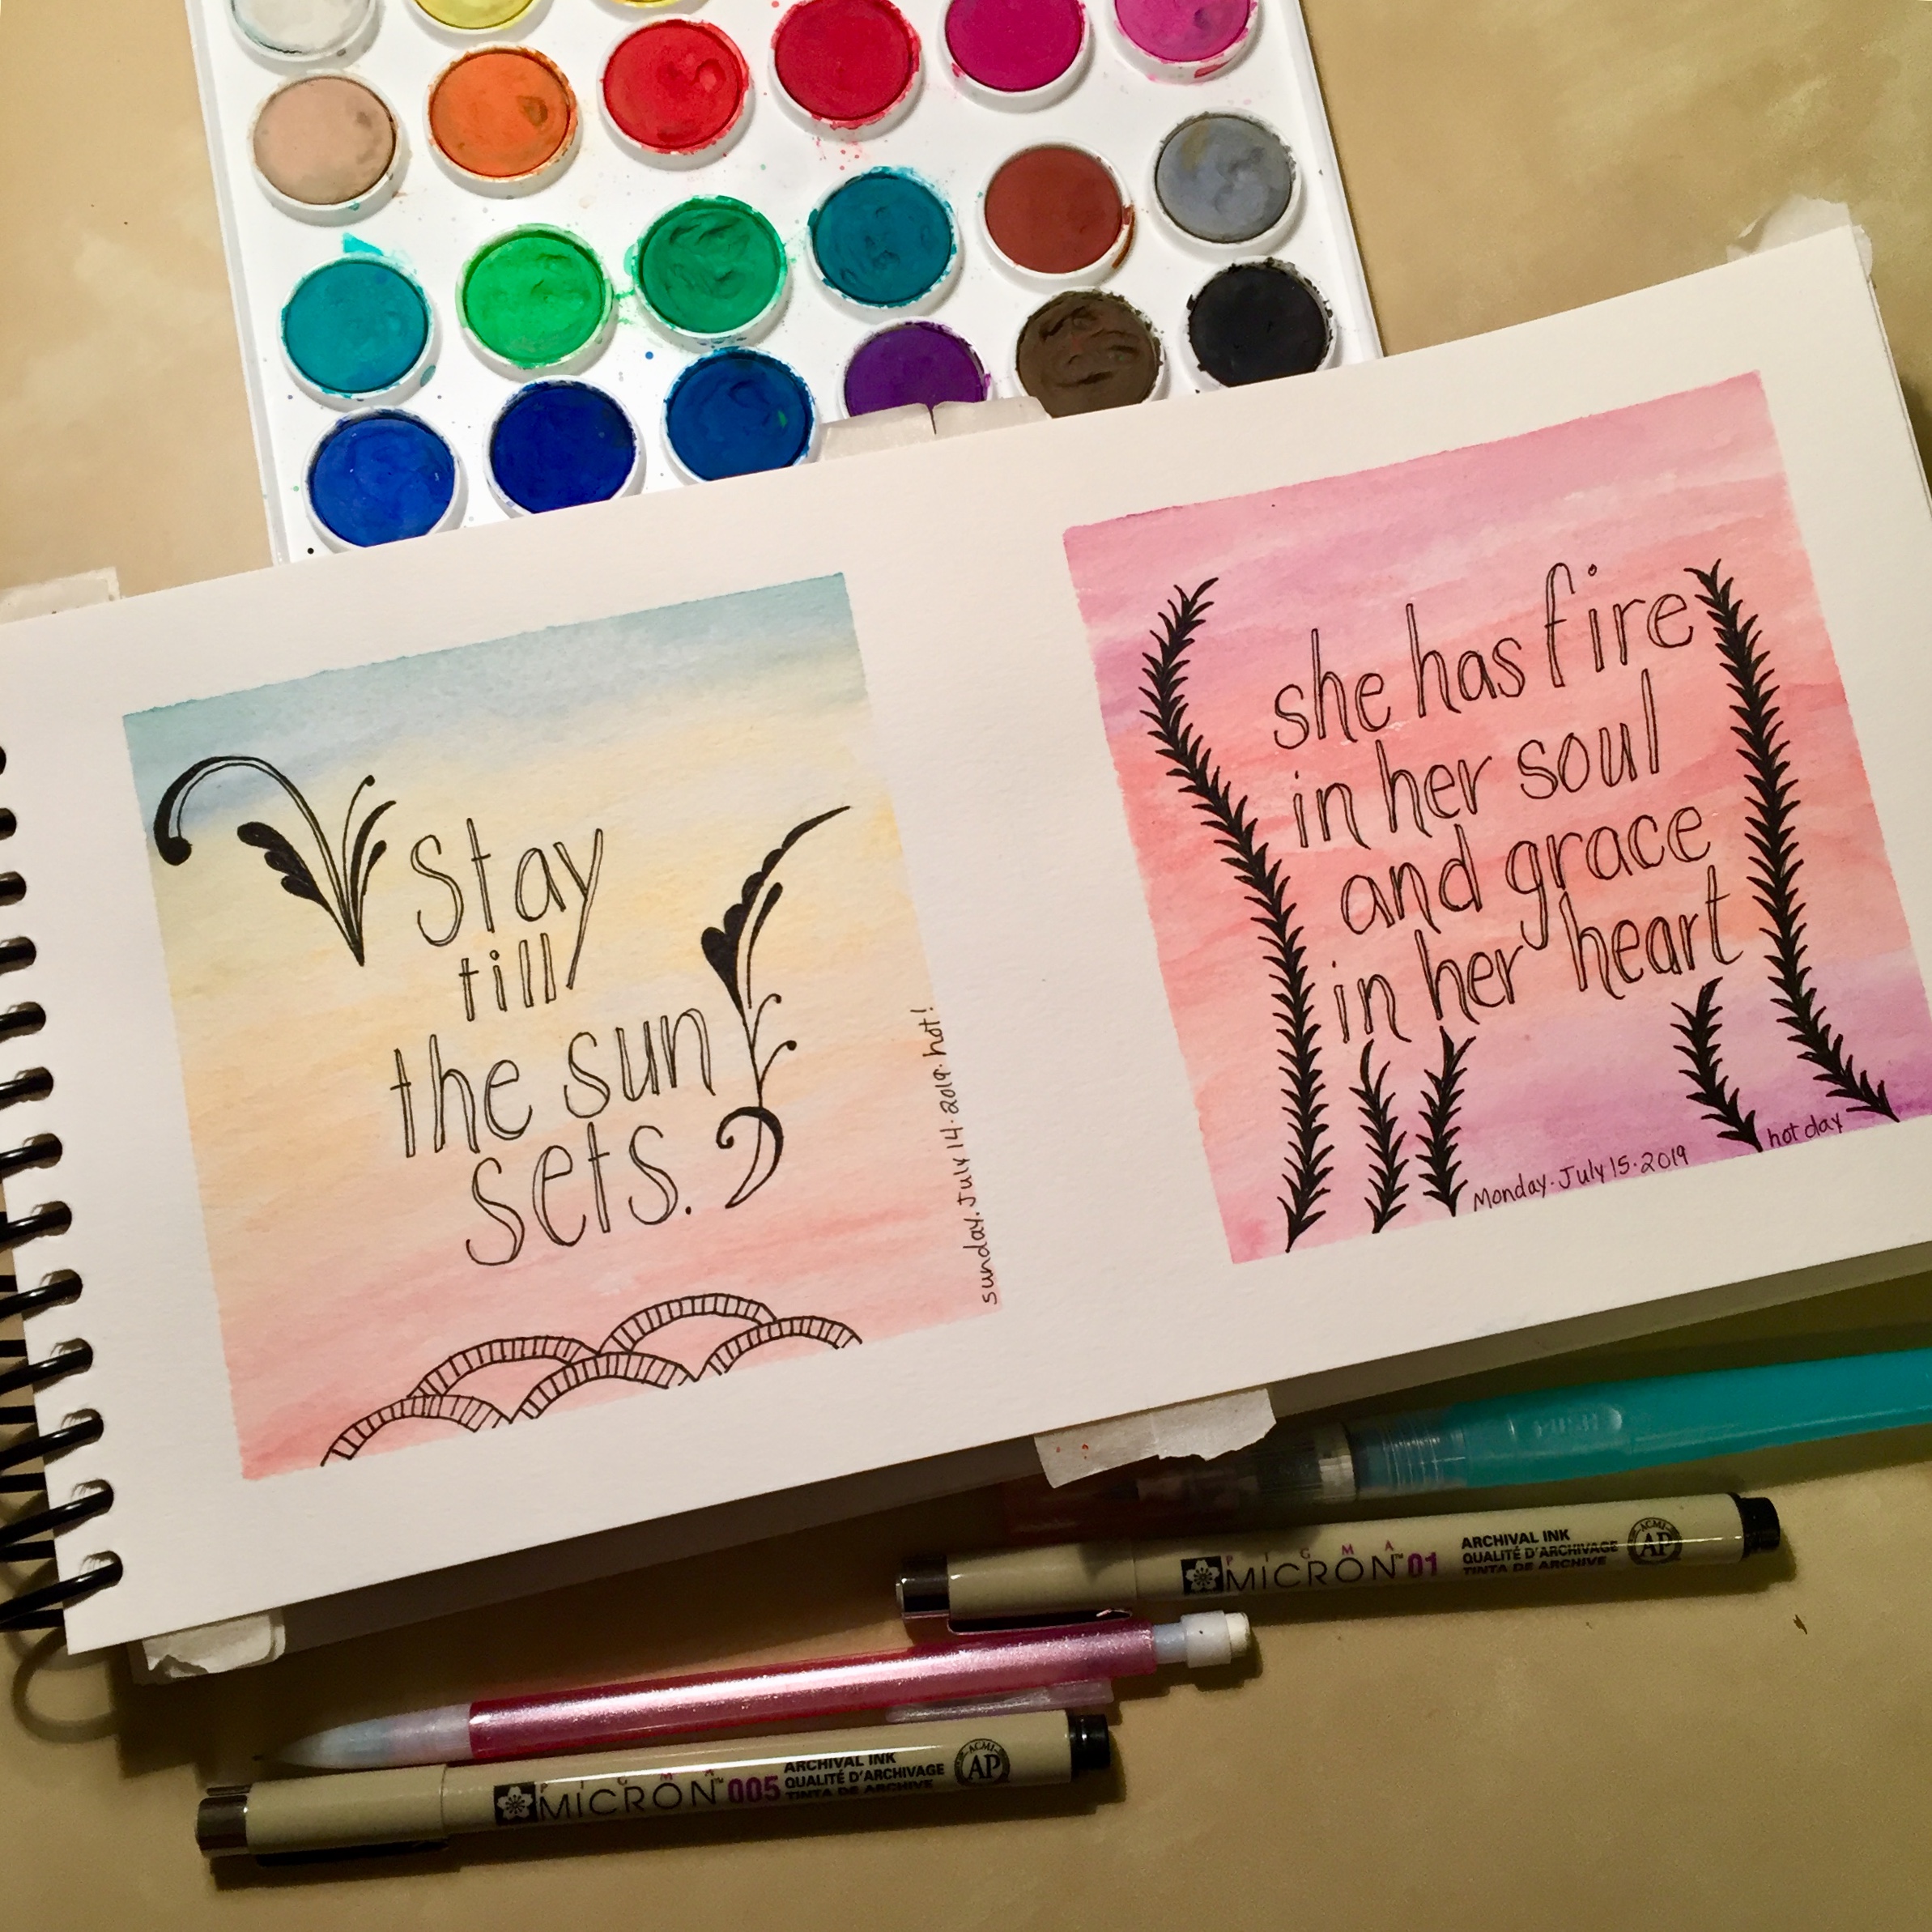 Stay
till
the sun
sets.
sunday. July 14. 2019. hot!
she has fire
in her soul
and grace
in her heart
Monday. July 15. 2019
hot day
PIGMA
MICRON™ 01
ARCHIVAL INK
QUALITÉ D'ARCHIVAGE
TINTA DE ARCHIVE
ACMI
AP
PIGMA
MICRON™ 005
ARCHIVAL INK
QUALITÉ D'ARCHIVAGE
TINTA DE ARCHIVE
ACMI
AP